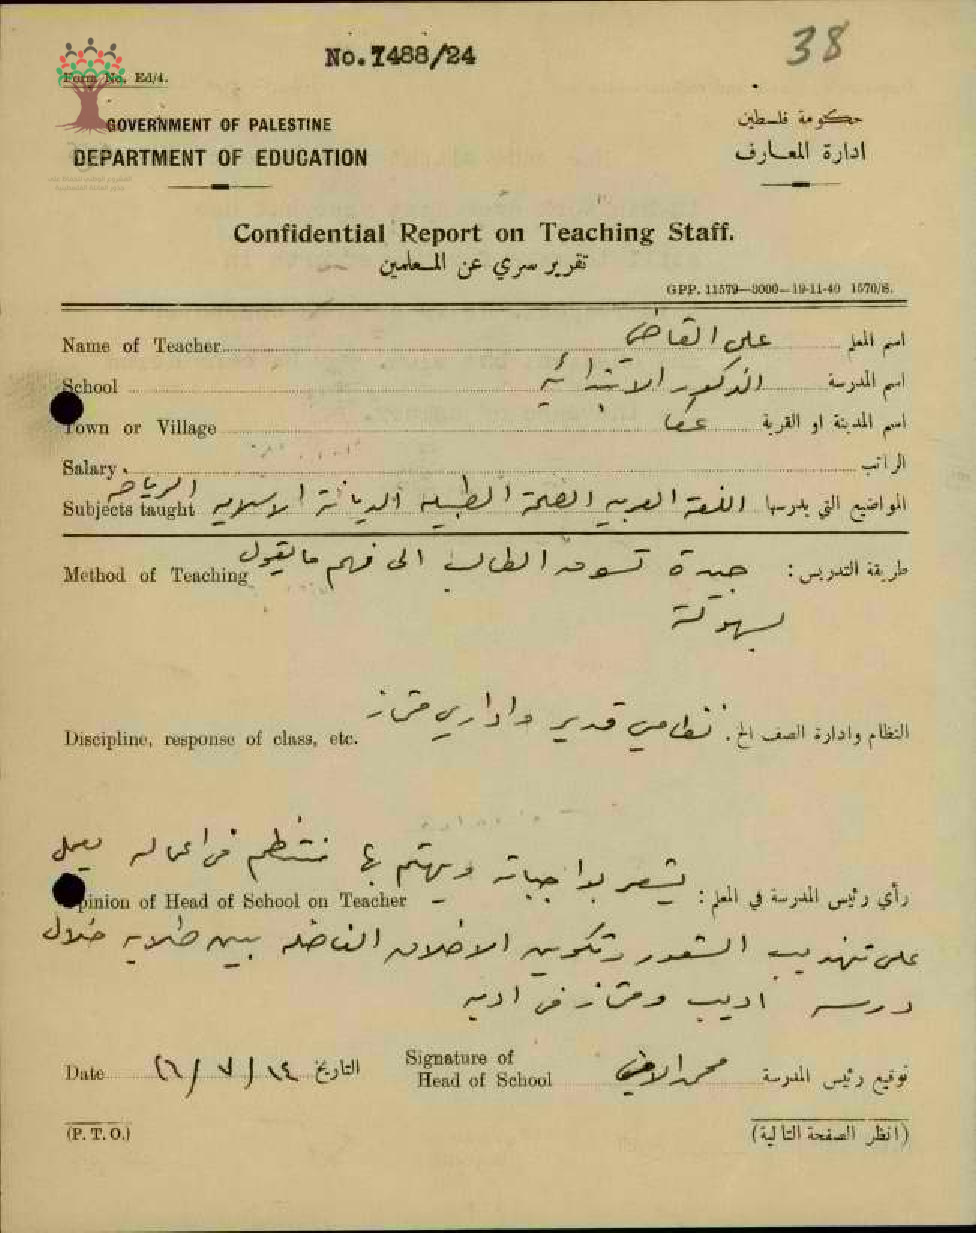 38
No. 7488/24
Form No. Ed/4.
GOVERNMENT OF PALESTINE
حكومة فلسطين
DEPARTMENT OF EDUCATION
ادارة المعارف
Confidential Report on Teaching Staff.
تقرير سري عن المعلمين
GPP. 11579—3000—19-11-40 1570/S.
Name of Teacher علي القاضي اسم المعلم
School الذكور الابتدائية اسم المدرسة
Town or Village عكا اسم المدينة او القرية
Salary الراتب
Subjects taught المواضيع التي يدرسها اللغة العربيه الصحة الطبيعه الديانة الاسلاميه الرياضه
Method of Teaching طريقة التدريس: جيدة تسوق الطالب الى فهم ما يقول
بسهولة
Discipline, response of class, etc. النظام وادارة الصف الخ. نظامي قدير واداري ممتاز
Opinion of Head of School on Teacher رأي رئيس المدرسة في المعلم: يشعر بواجباته ويهتم بها منتظم في اعماله يعمل
على تهذيب الشعور وتكوين الاخلاق الفاضله بين طلابه خلال
درسه اديب وممتاز في ادبه
Date التاريخ
Signature of Head of School محمد توقيع رئيس المدرسة
(P. T. O.)
(انظر الصفحة التالية)